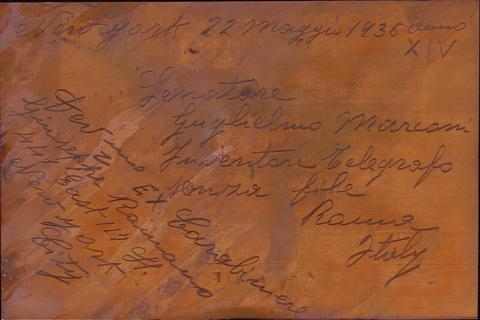 New york 22 Maggio 1936 anno
XIV
Senatore
Guglielmo Marconi
Inventore Telegrafo
senza file
Roma
Italy
Ex Carabiniere
Giuseppe Romano
East 111 St.
New York
City